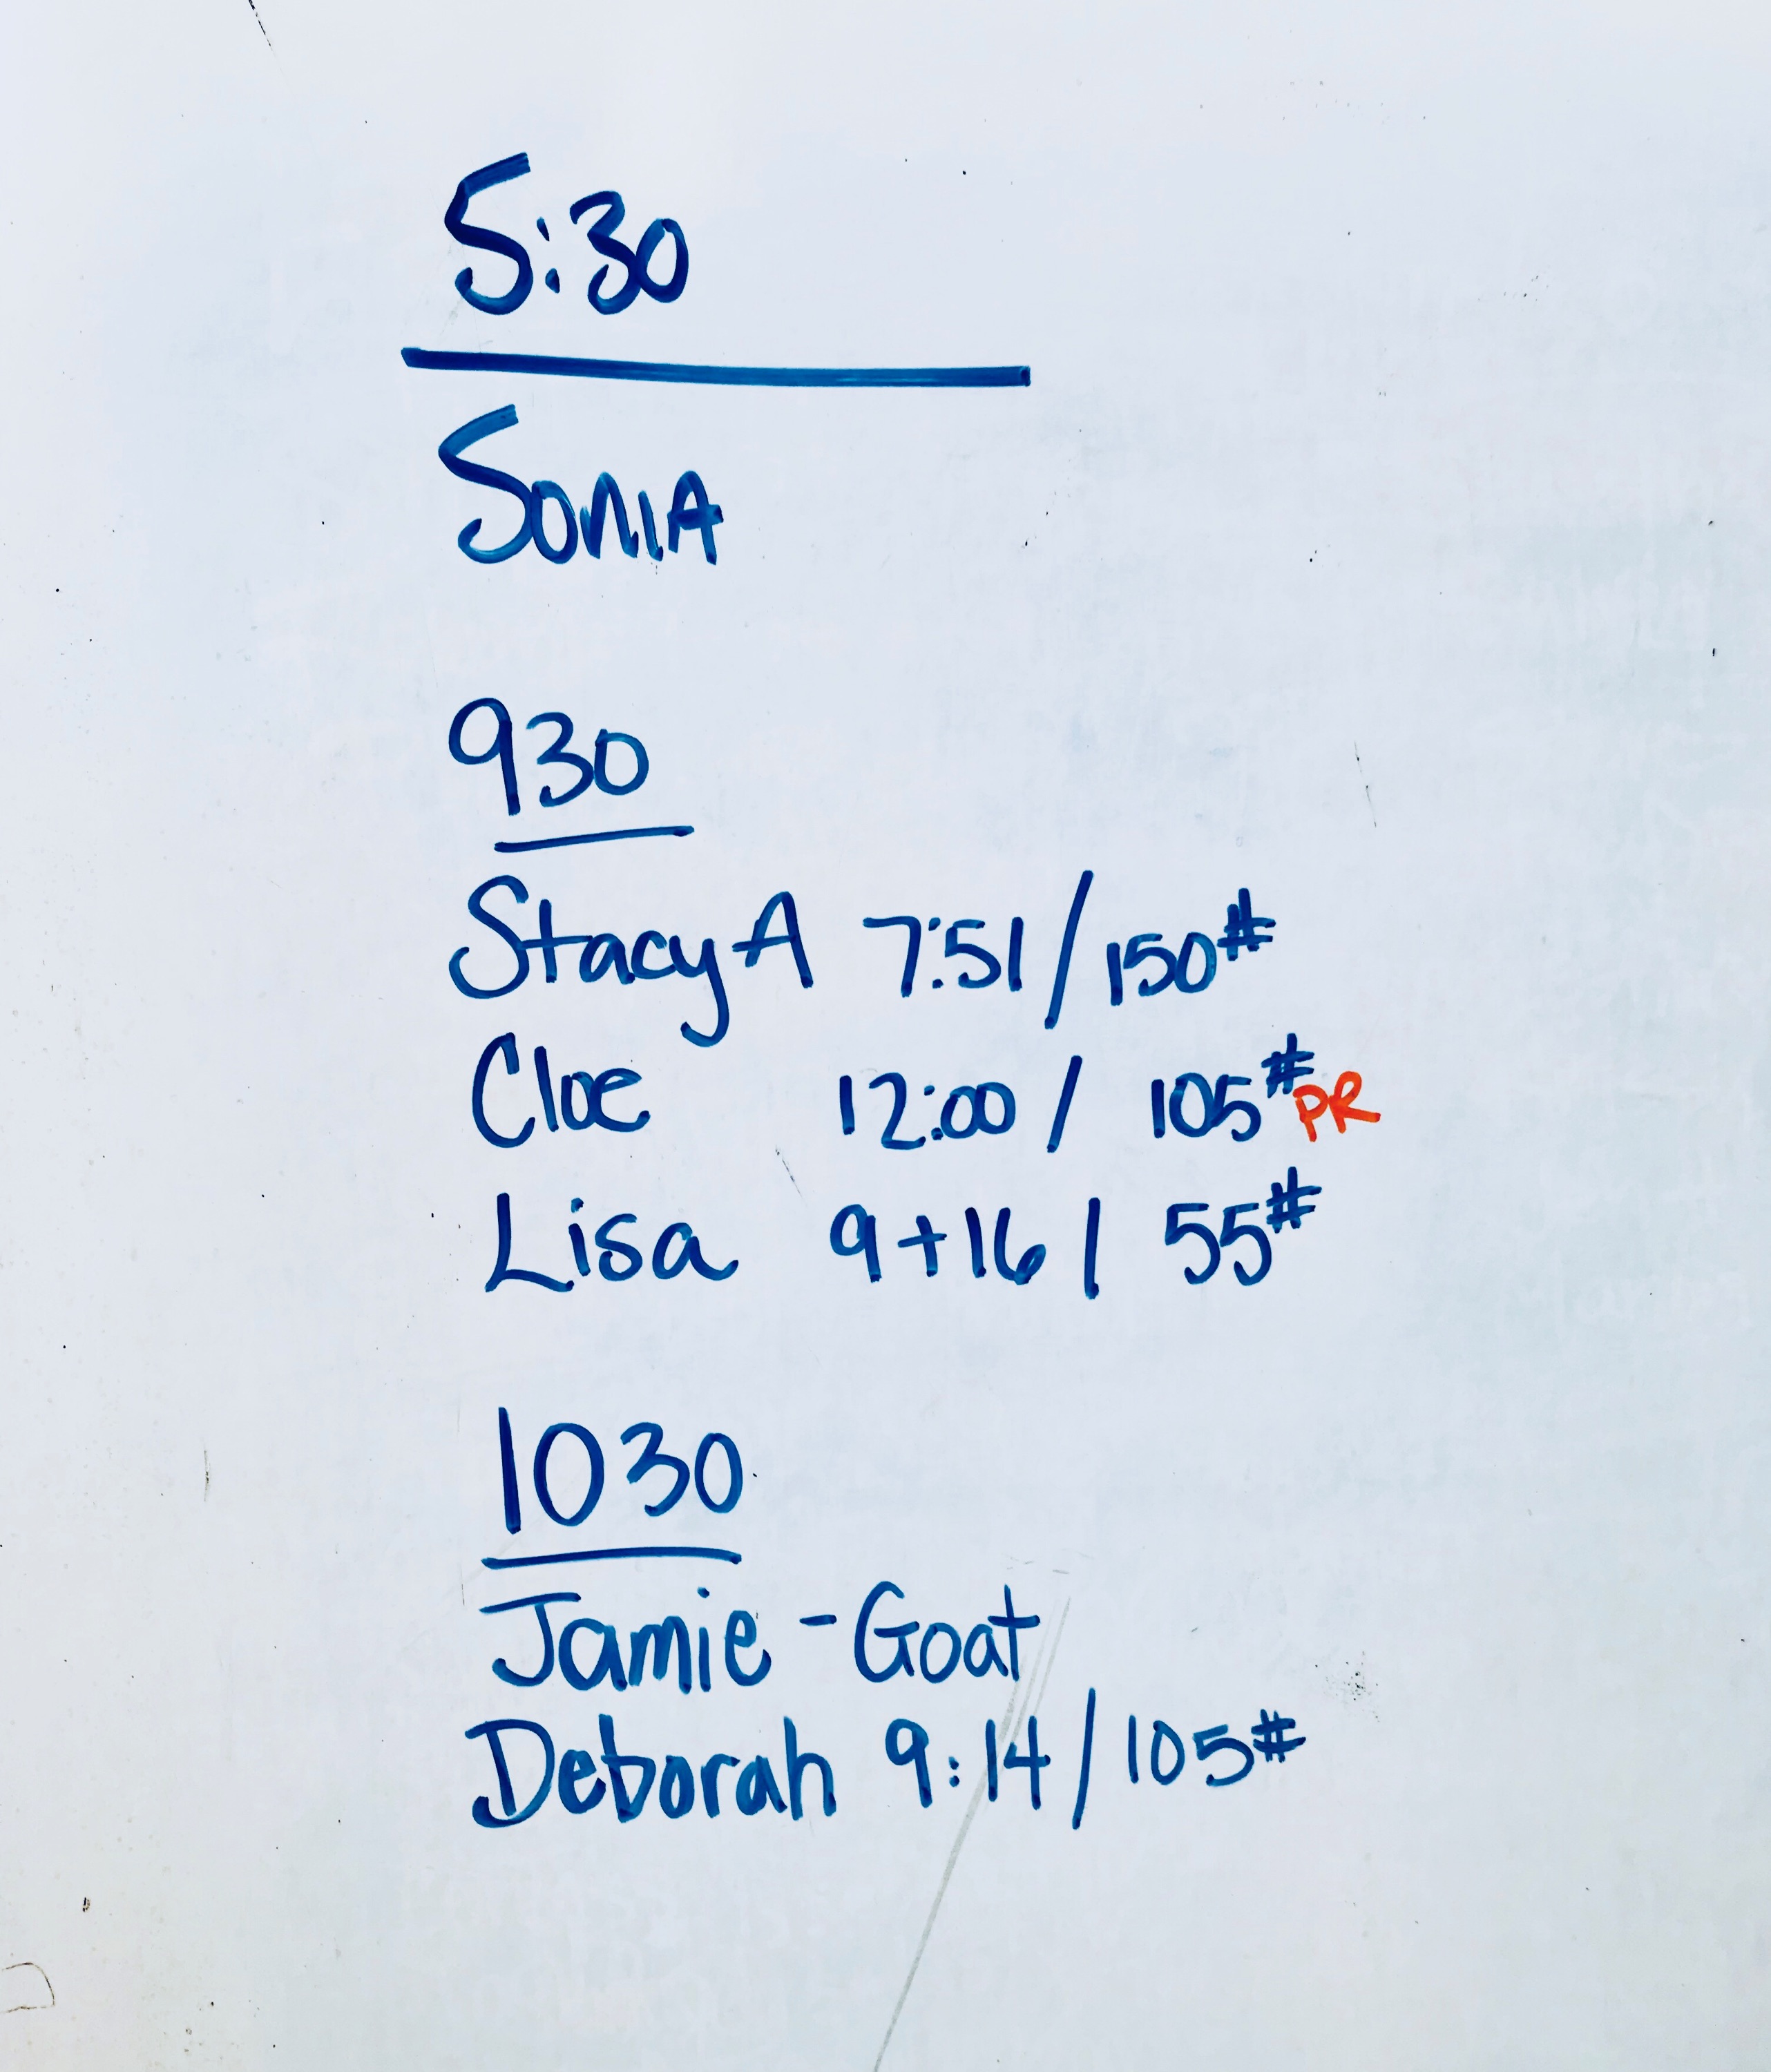 5:30
SonIA
930
Stacy A 7:51 / 150#
Cloe 12:00 / 105# PR
Lisa 9+16 / 55#
1030
Jamie - Goat
Deborah 9:14 / 105#